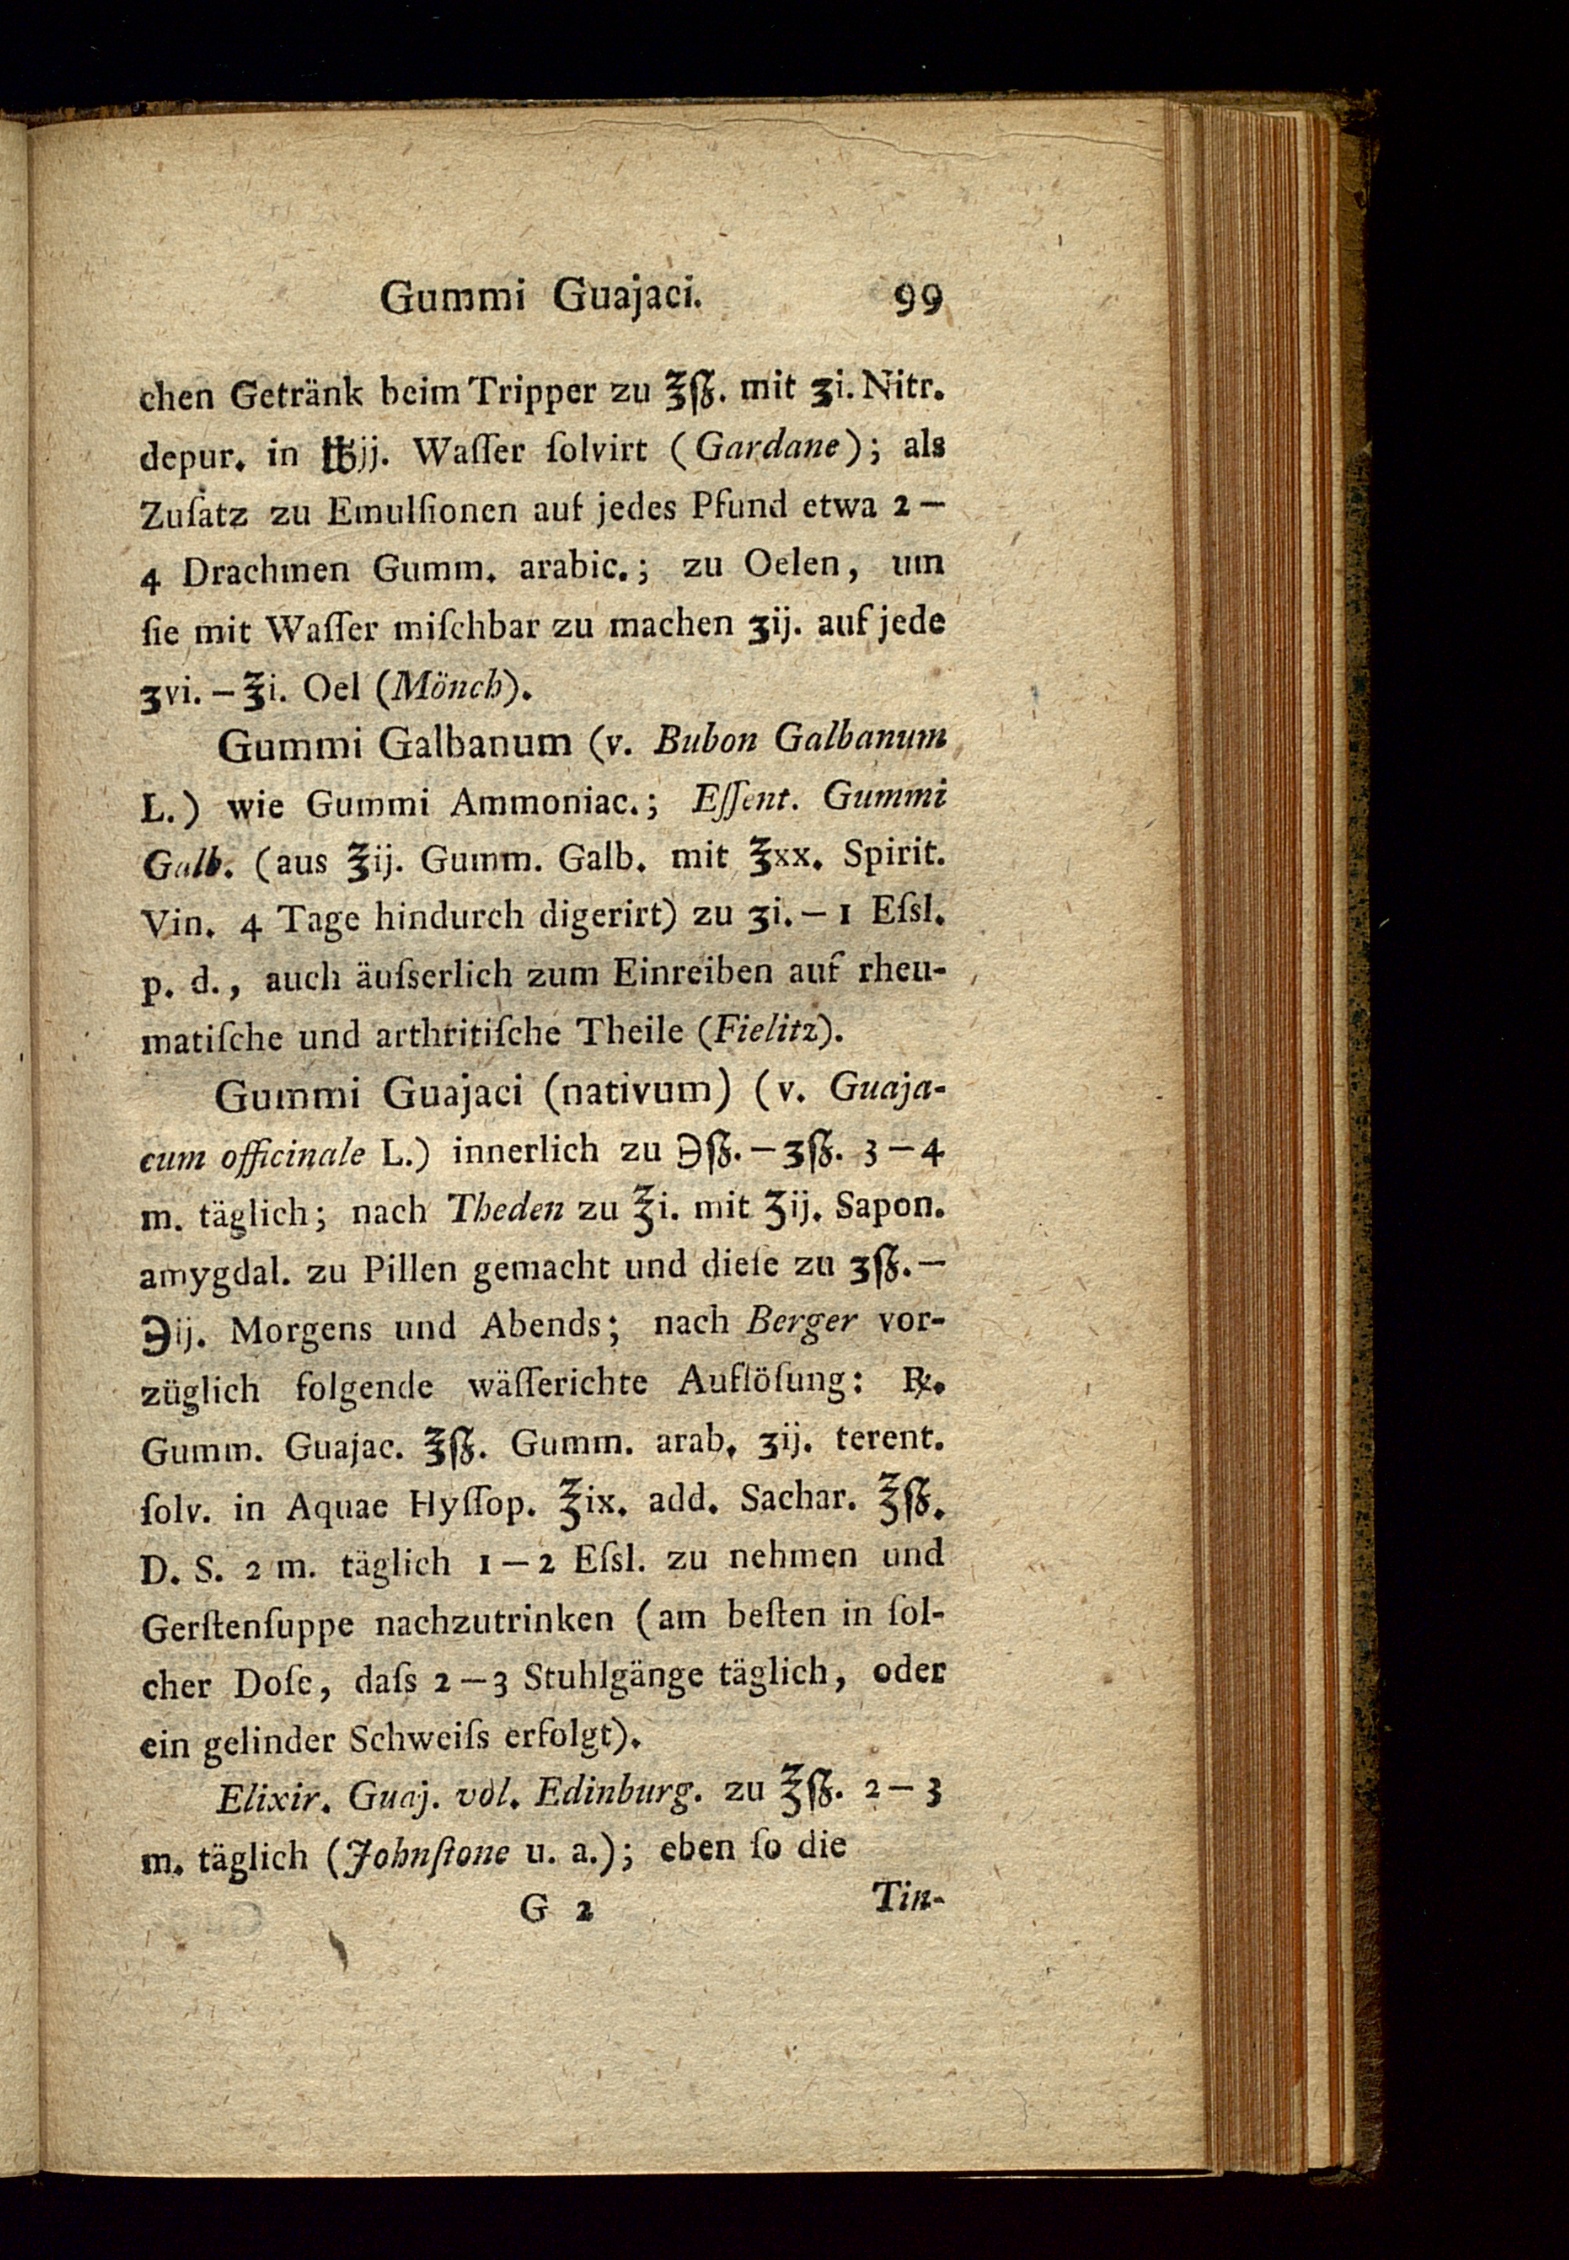 Gummi Guajaci. 99
chen Getränk beim Tripper zu ℥ſß. mit ʒi. Nitr.
depur. in ℔jj. Waſſer ſolvirt (Gardane); als
Zuſatz zu Emulſionen auf jedes Pfund etwa 2 —
4 Drachmen Gumm. arabic.; zu Oelen, um
ſie mit Waſſer miſchbar zu machen ʒij. auf jede
ʒvi. — ℥i. Oel (Mönch).
Gummi Galbanum (v. Bubon Galbanum
L.) wie Gummi Ammoniac.; Eſſent. Gummi
Galb. (aus ℥ij. Gumm. Galb. mit ℥xx. Spirit.
Vin. 4 Tage hindurch digerirt) zu ʒi. — 1 Eſsl.
p. d., auch äuſserlich zum Einreiben auf rheu-
matiſche und arthritiſche Theile (Fielitz).
Gummi Guajaci (nativum) (v. Guaja-
cum officinale L.) innerlich zu ℈ſß. — ʒſß. 3 — 4
m. täglich; nach Theden zu ℥i. mit ʒij. Sapon.
amygdal. zu Pillen gemacht und dieſe zu ʒſß. —
℈ij. Morgens und Abends; nach Berger vor-
züglich folgende wäſſerichte Auflöſung: ℞.
Gumm. Guajac. ℥ſß. Gumm. arab. ʒij. terent.
ſolv. in Aquae Hyſſop. ℥ix. add. Sachar. ℥ſß.
D. S. 2 m. täglich 1 — 2 Eſsl. zu nehmen und
Gerſtenſuppe nachzutrinken (am beſten in ſol-
cher Doſe, daſs 2 — 3 Stuhlgänge täglich, oder
ein gelinder Schweiſs erfolgt).
Elixir. Guaj. vol. Edinburg. zu ℥ſß. 2 — 3
m. täglich (Johnſtone u. a.); eben ſo die
G 2 Tin-